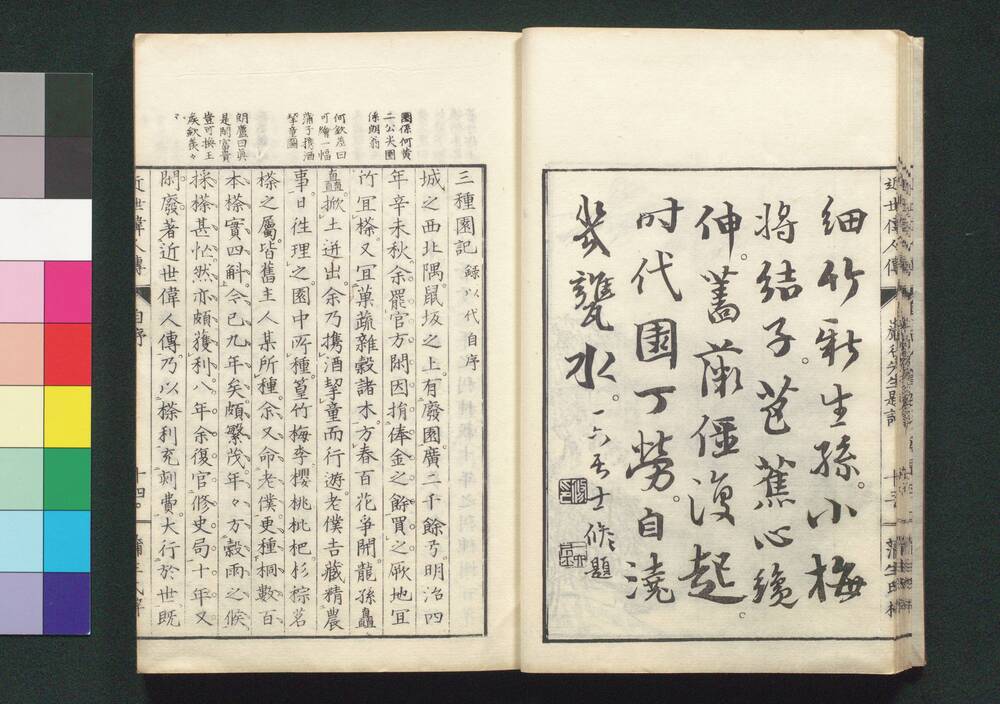 近世偉人傳
十三
蒲生氏梓
細竹新生孫。小梅
将结子。芭蕉心續
伸。薔薇僵復起。
时代園丁勞。自澆
幾甕水。一六居士修題
園係何黄
二公夫園
係朗翁
何欽差曰
可繪一幅
蒲子携酒
挈童圖
朗廬曰眞
是閑富貴
豈可換王
侯歆羨々
々
三種園記 録以代自序
城之西北隅。鼠坂之上。有廢園。廣二千餘弓。明治四
年辛未秋。余罷官方閑。因捐俸金之餘買之。厥地宜
竹宜搽。又宜菓蔬雜穀諸木。方春百花爭開。龍孫矗
矗。掀土迸出。余乃携酒挈童而行遊。老僕吉藏精農
事。日徃理之。園中所種。篁竹梅李櫻桃枇杷杉棕茗
搽之屬。皆舊主人某所種。余又命老僕。更種桐數百
本搽實四斛。今已九年矣。頗繁茂。年々方穀雨之候。
採搽甚忙。然亦頗獲利。八年余復官修史局。十年又
閑廢。著近世偉人傳。乃以搽利充刻費。大行於世。既
近世偉人傳
自序
十四
蒲生氏梓